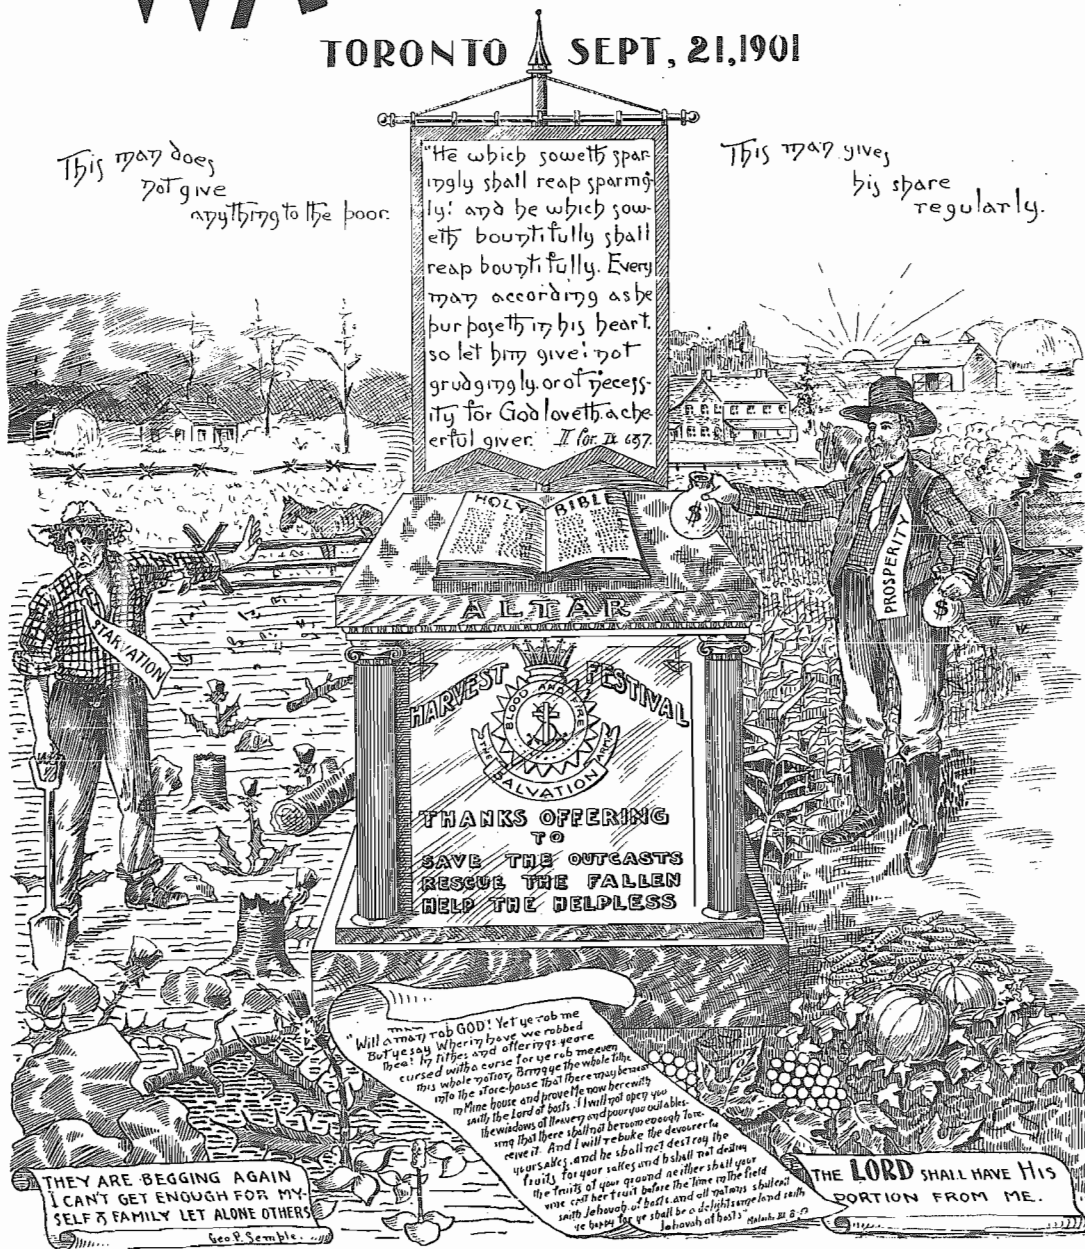 TORONTO SEPT, 21, 1901
This man does
not give
anything to the poor.
This man gives
his share
regularly.
"He which soweth spar-
ingly shall reap sparing-
ly: and he which sow-
eth bountifully shall
reap bountifully. Every
man according as he
purposeth in his heart.
so let him give: not
grudgingly. or of necess-
ity for God loveth a che-
erful giver. II Cor. IX 6&7.
HOLY BIBLE
ALTAR
STARVATION
PROSPERITY
HARVEST FESTIVAL
BLOOD AND FIRE
THE SALVATION ARMY
THANKS OFFERING
TO
SAVE THE OUTCASTS
RESCUE THE FALLEN
HELP THE HELPLESS
man
"Will a man rob GOD! Yet ye rob me
But ye say Wherin have we robbed
thea! In tithes and offerings ye are
cursed with a curse for ye rob me even
this whole nation, Bring ye the whole tithe
into the store-house that there may be meat
in Mine house and prove Me now herewith
saith the Lord of hosts. If I will not open you
the windows of Heaven and pour you out a bles-
sing that there shall not be room enough to re-
ceive it. And I will rebuke the devourer for
your sakes, and he shall not destroy the
fruits for your sakes and he shall not destroy
the fruits of your ground neither shall your
vine cast her fruit before the time in the field
saith Jehovah of hosts. and all nations shall call
ye happy for ye shall be a delightsome land saith
Jehovah of hosts" Malachi III 8-12
THEY ARE BEGGING AGAIN
I CAN'T GET ENOUGH FOR MY-
SELF & FAMILY LET ALONE OTHERS
Geo. P. Semple.
THE LORD SHALL HAVE HIS
PORTION FROM ME.